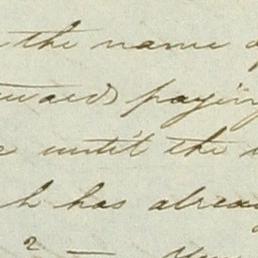 the name of
towards paying
until the
h has alread
2 —